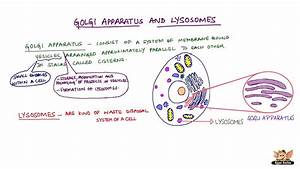 GOLGI APPARATUS AND LYSOSOMES
GOLGI APPARATUS – CONSIST OF A SYSTEM OF MEMBRANE BOUND
VESICLES ARRANGED APPROXIMATELY PARALLEL TO EACH OTHER
IN STACKS CALLED CISTERNS
SMALL BUBBLES
WITHIN A CELL
- STORAGE, MODIFICATION AND
PACKAGING OF PRODUCTS IN VESICLES
- FORMATION OF LYSOSOMES
LYSOSOMES – ARE KIND OF WASTE DISPOSAL
SYSTEM OF A CELL
LYSOSOMES
GOLGI APPARATUS